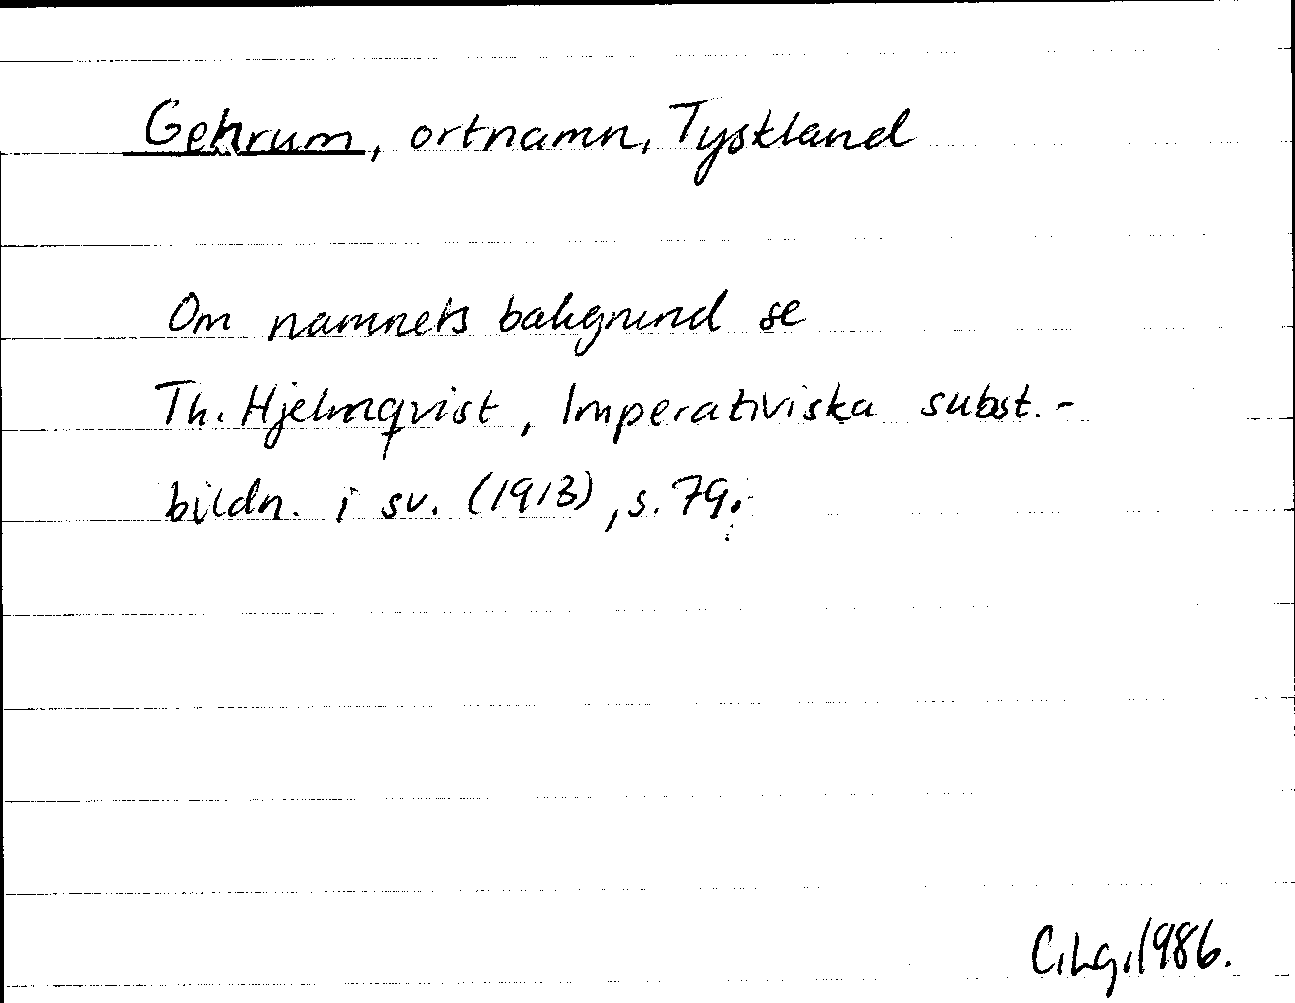 Gehrum, ortnamn, Tyskland
Om namnets bakgrund se
Th. Hjelmqvist, Imperativiska subst.-
bildn. i sv. (1913), s. 79.
C.Lg.1986.